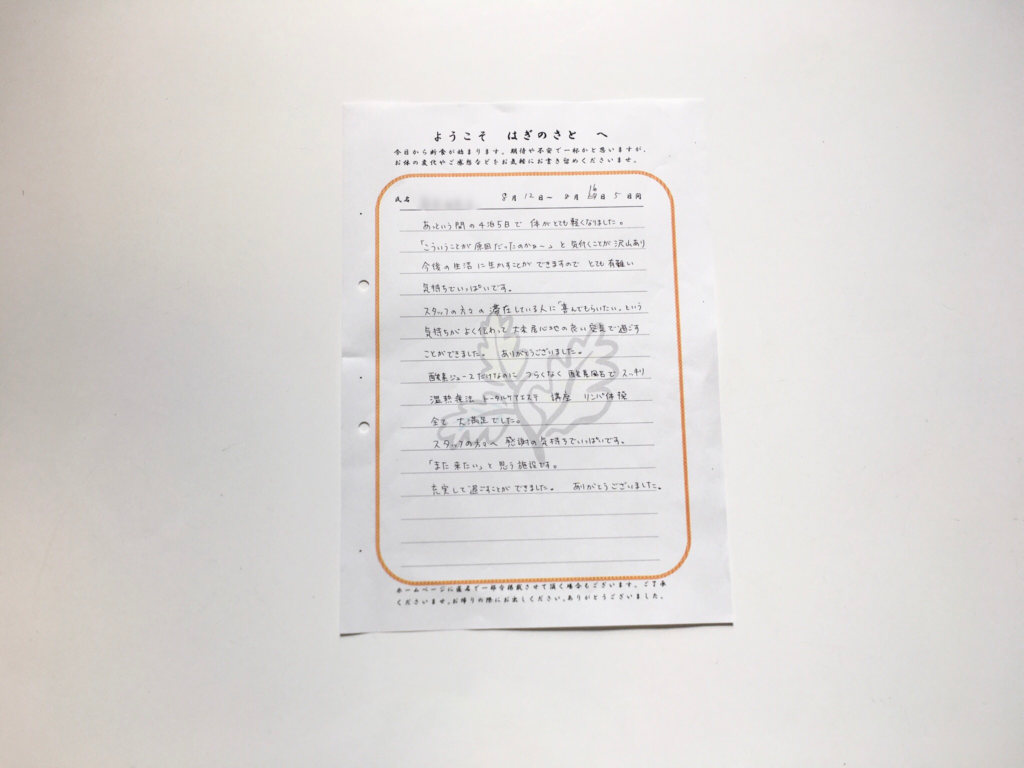 ようこそ はぎのさと へ
今日から断食が始まります。期待や不安で一杯かと思いますが、
お体の変化やご感想などをお気軽にお書き留めくださいませ。
氏名 8月12日〜8月16日5日間
あっという間の4泊5日で 体がとても軽くなりました。
「こういうことが原因だったのかぁ〜」と気付くことが沢山あり
今後の生活に生かすことができますので とても有難い
気持ちでいっぱいです。
スタッフの方々の滞在している人に「喜んでもらいたい」という
気持ちがよく伝わって大変居心地の良い空気で過ごす
ことができました。 ありがとうございました。
酵素ジュースだけなのに つらくなく 酵素風呂でスッキリ
温熱療法 トータルケアエステ 講座 リンパ体操
全て 大満足でした。
スタッフの方々へ 感謝の気持ちでいっぱいです。
「また来たい」と思う施設です。
充実して過ごすことができました。 ありがとうございました。
ホームページに匿名で一部分掲載させて頂く場合もございます。ご了承
くださいませ。お帰りの際にお出しください。ありがとうございました。